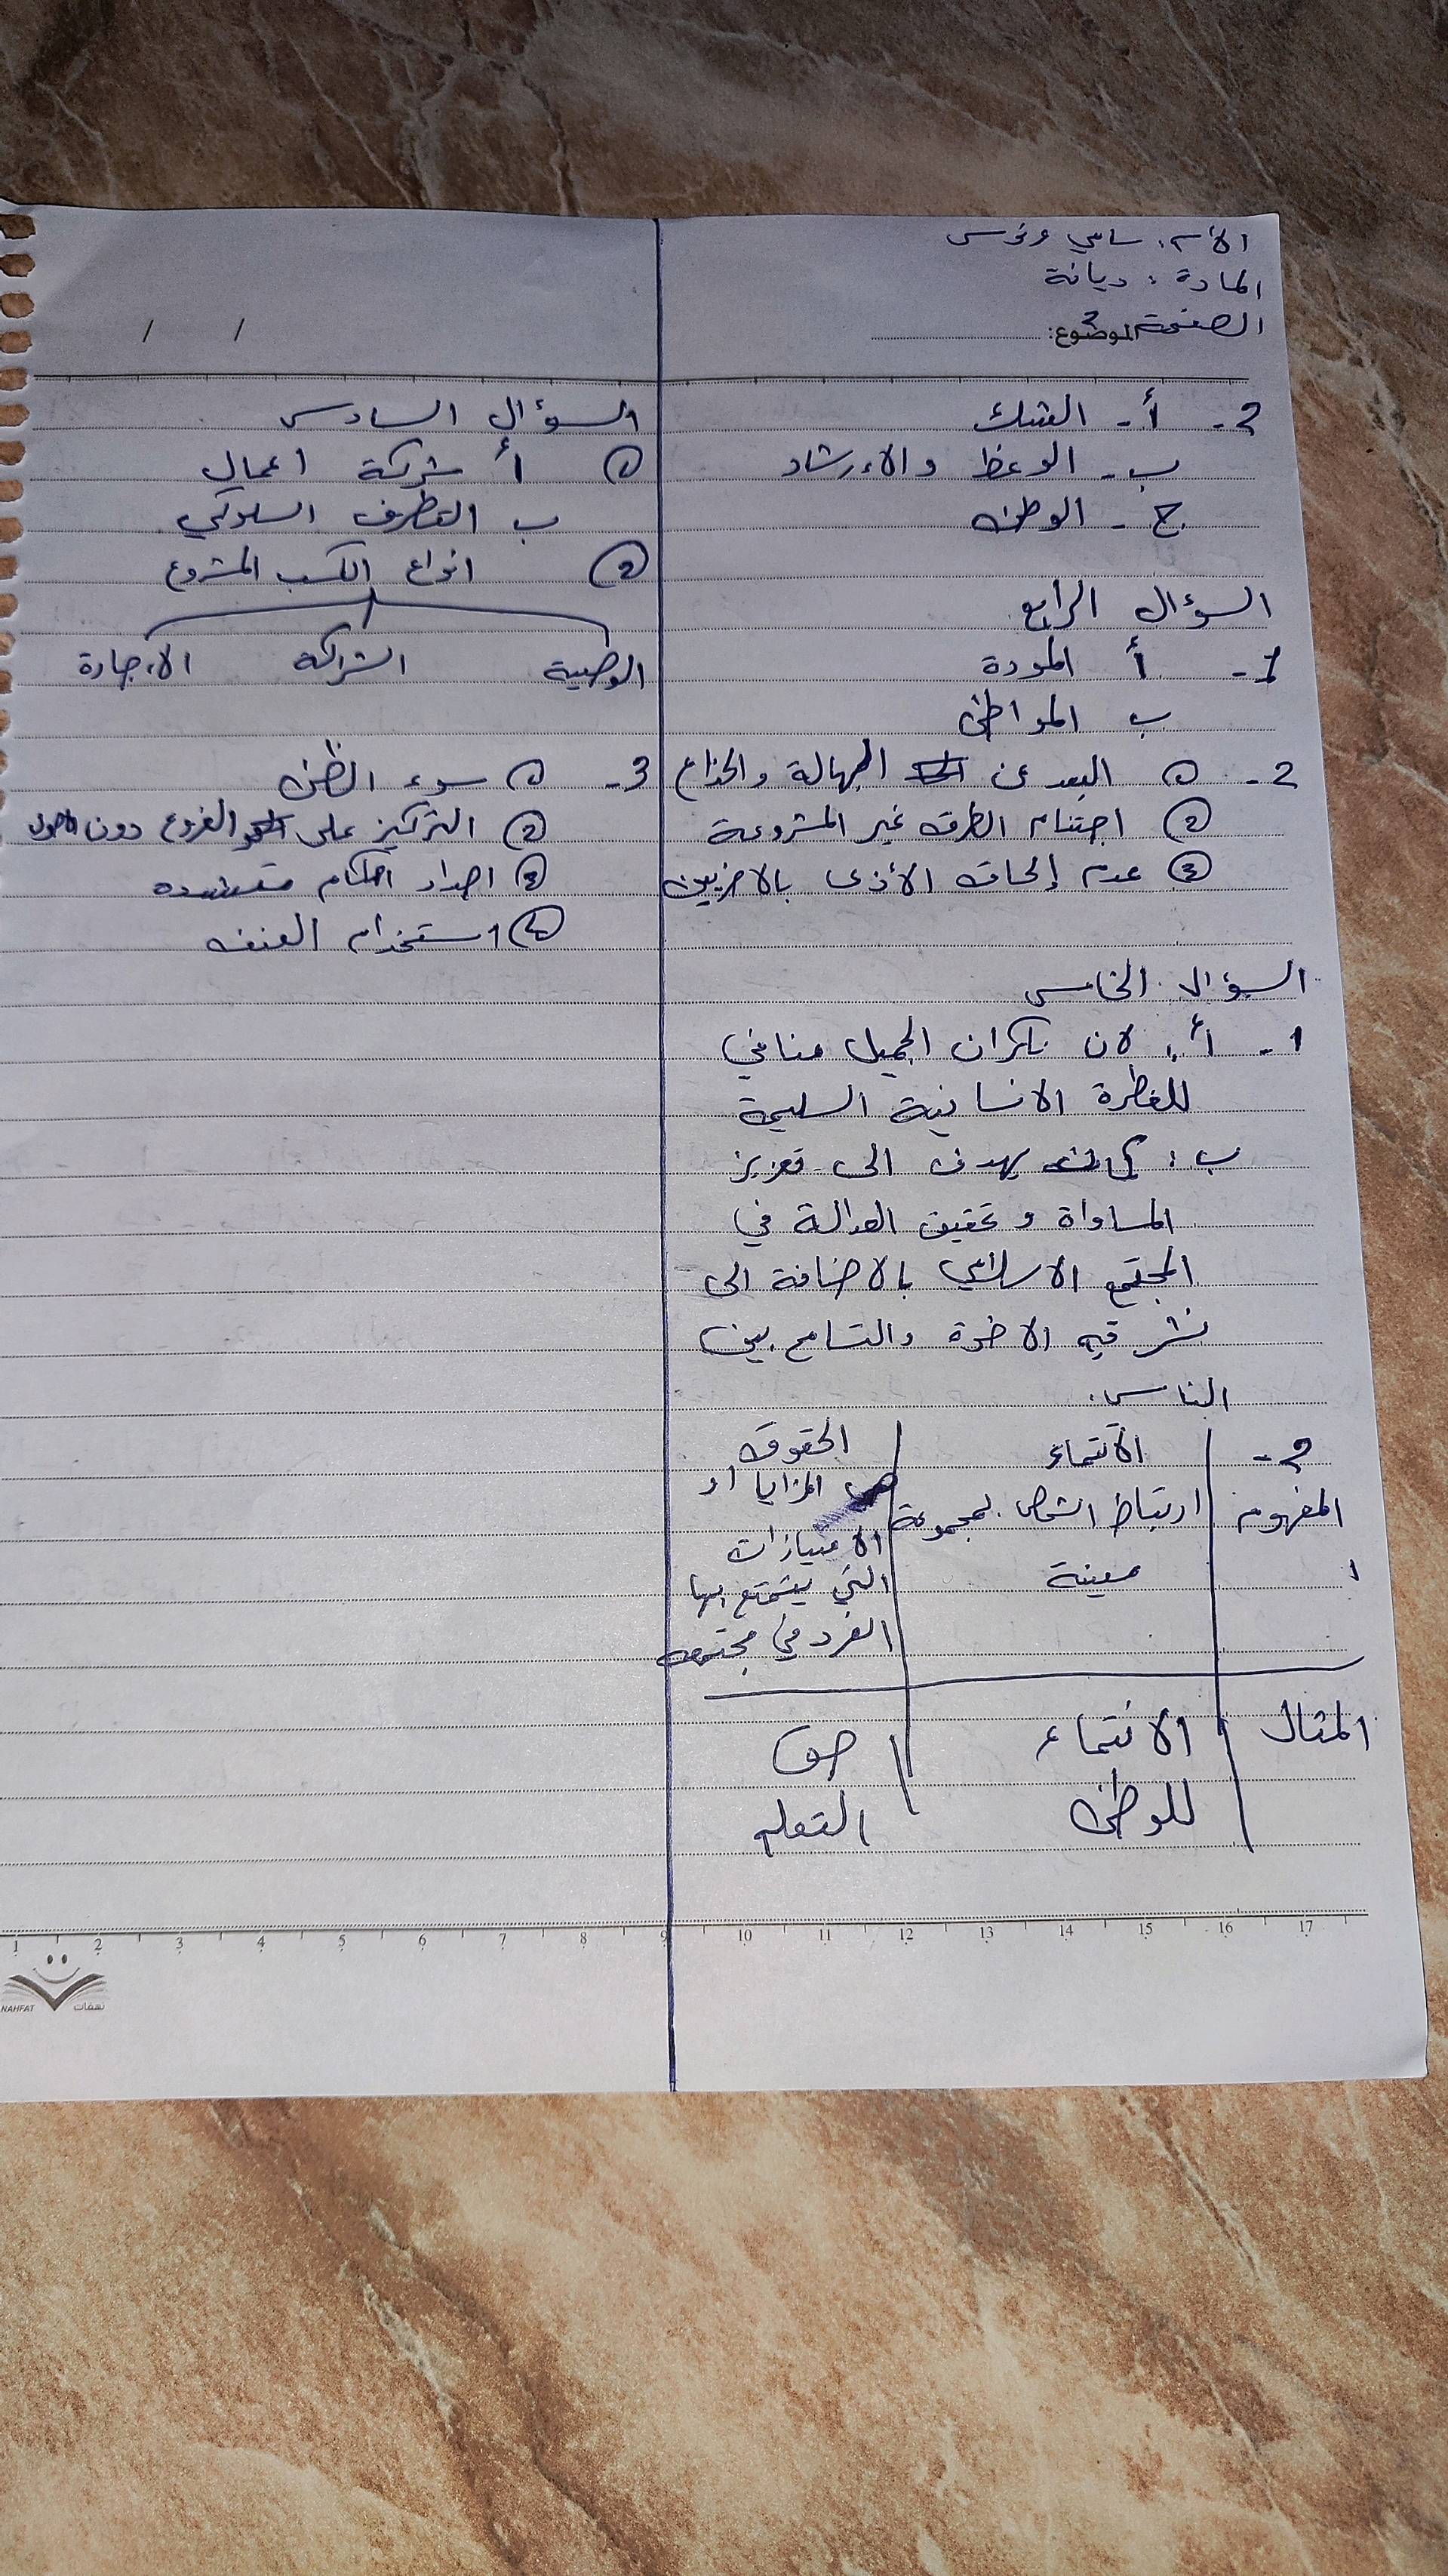 الاسم: سامي ونوس
المادة: ديانة
الصفحة 2
الموضوع:
2- أ- الشك
ب- الوعظ والاءرشاد
ج- الوطن
السؤال الرابع
1- أ المودة
ب المواطن
2- ① البعد عن الجهالة والخداع
② اجتناب الطرق غير المشروعة
③ عدم إلحاق الأذى بالاخرين
السؤال الخامس
1- أ: لان نكران الجميل منافي
للفطرة الانسانية السليمة
ب: يهدف الى تعزيز
المساواة و تحقيق العدالة في
المجتمع الاسلامي بالاضافة الى
نشر فيه الاخوة والتسامح بين
الناس.
2- الأنتماء الحقوق
المفهوم ارتباط الشخص لمجموعة معينة هي المزايا او
الامتيازات
التي يتمتع بها
الفرد في مجتمعه
المثال الانتماء للوطن حق التعلم
السؤال السادس
① أ شركة اعمال
ب التطرف السلوكي
② انواع الكسب المشروع
الوصية الشراكة الاءجارة
3- ① سوء الظن
② التركيز على الفروع دون الاصول
③ اصدار احكام متشدده
④ استخدام العنف
1 2 3 4 5 6 7 8 9 10 11 12 13 14 15 16 17
NAHFAT نهفات